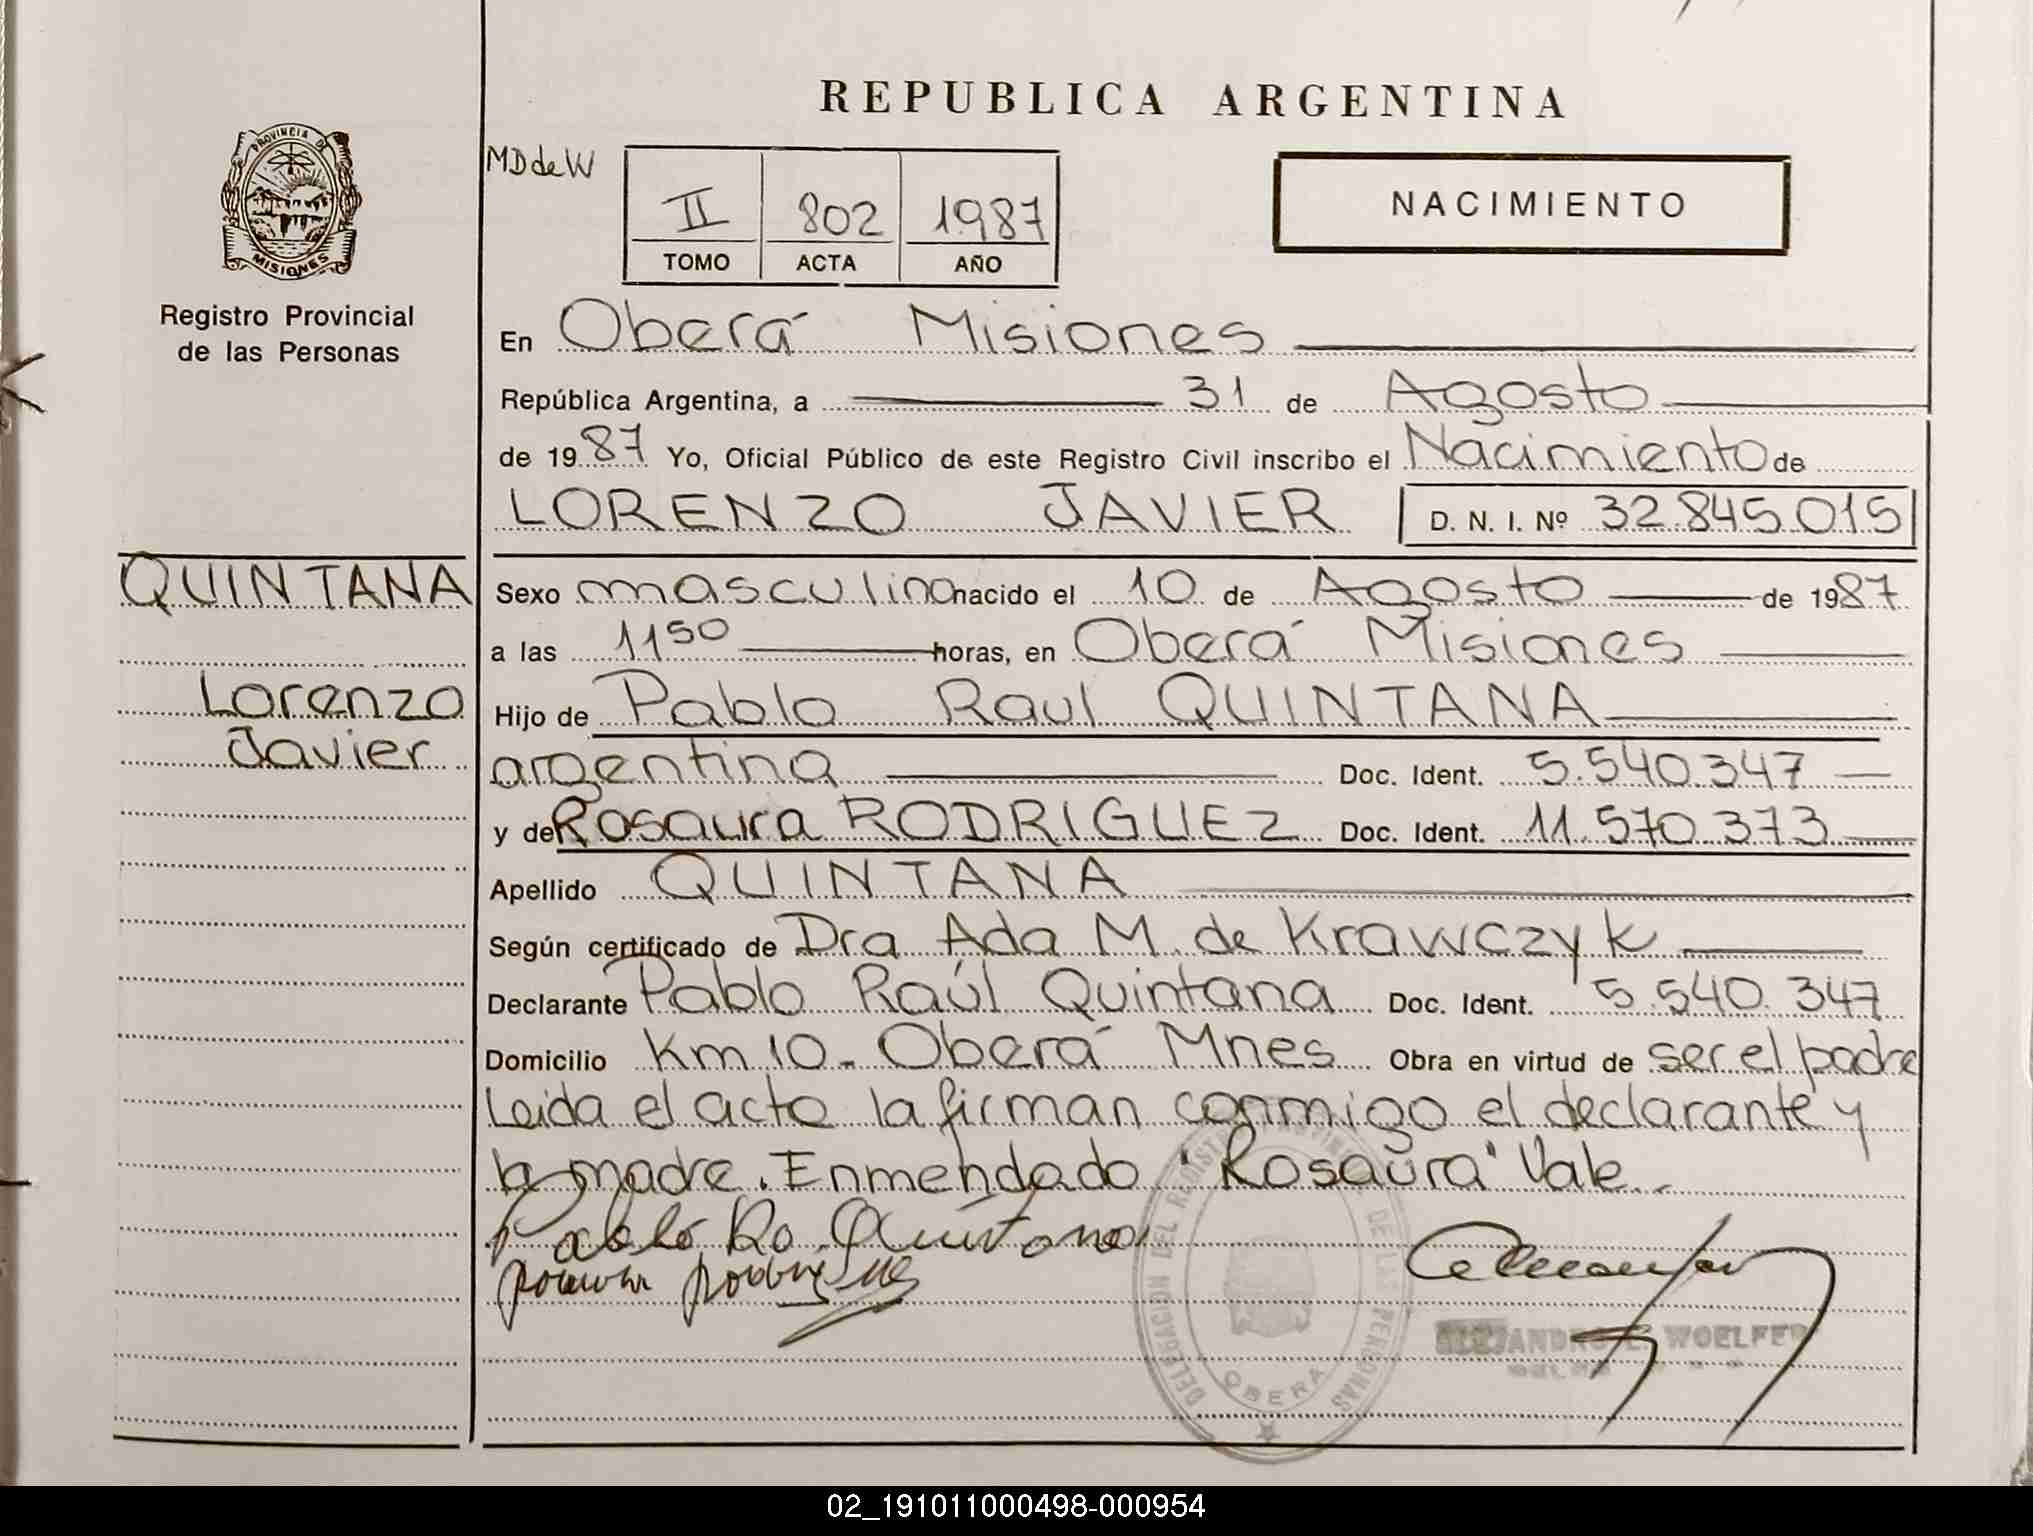 REPUBLICA ARGENTINA
PROVINCIA DE
MISIONES
Registro Provincial
de las Personas
MD de W
II 802 1987
TOMO ACTA AÑO
NACIMIENTO
En Oberá Misiones
República Argentina, a 31 de Agosto
de 1987 Yo, Oficial Público de este Registro Civil inscribo el Nacimiento de
LORENZO JAVIER D. N. I. Nº 32.845.015
QUINTANA
Lorenzo
Javier
Sexo masculino nacido el 10 de Agosto de 1987
a las 11 50 horas, en Oberá Misiones
Hijo de Pablo Raul QUINTANA
argentina Doc. Ident. 5.540.347
y de Rosaura RODRIGUEZ Doc. Ident. 11.570.373
Apellido QUINTANA
Según certificado de Dra Ada M. de Krawczyk
Declarante Pablo Raúl Quintana Doc. Ident. 5.540.347
Domicilio Km 10 - Oberá Mnes Obra en virtud de ser el padre
Leida el acto la firman conmigo el declarante y
la madre. Enmendado "Rosaura" Vale.
Pablo Ra. Quintana
DELEGACION DEL REGISTRO DE LAS PERSONAS
OBERA
WOELFER
02_191011000498-000954